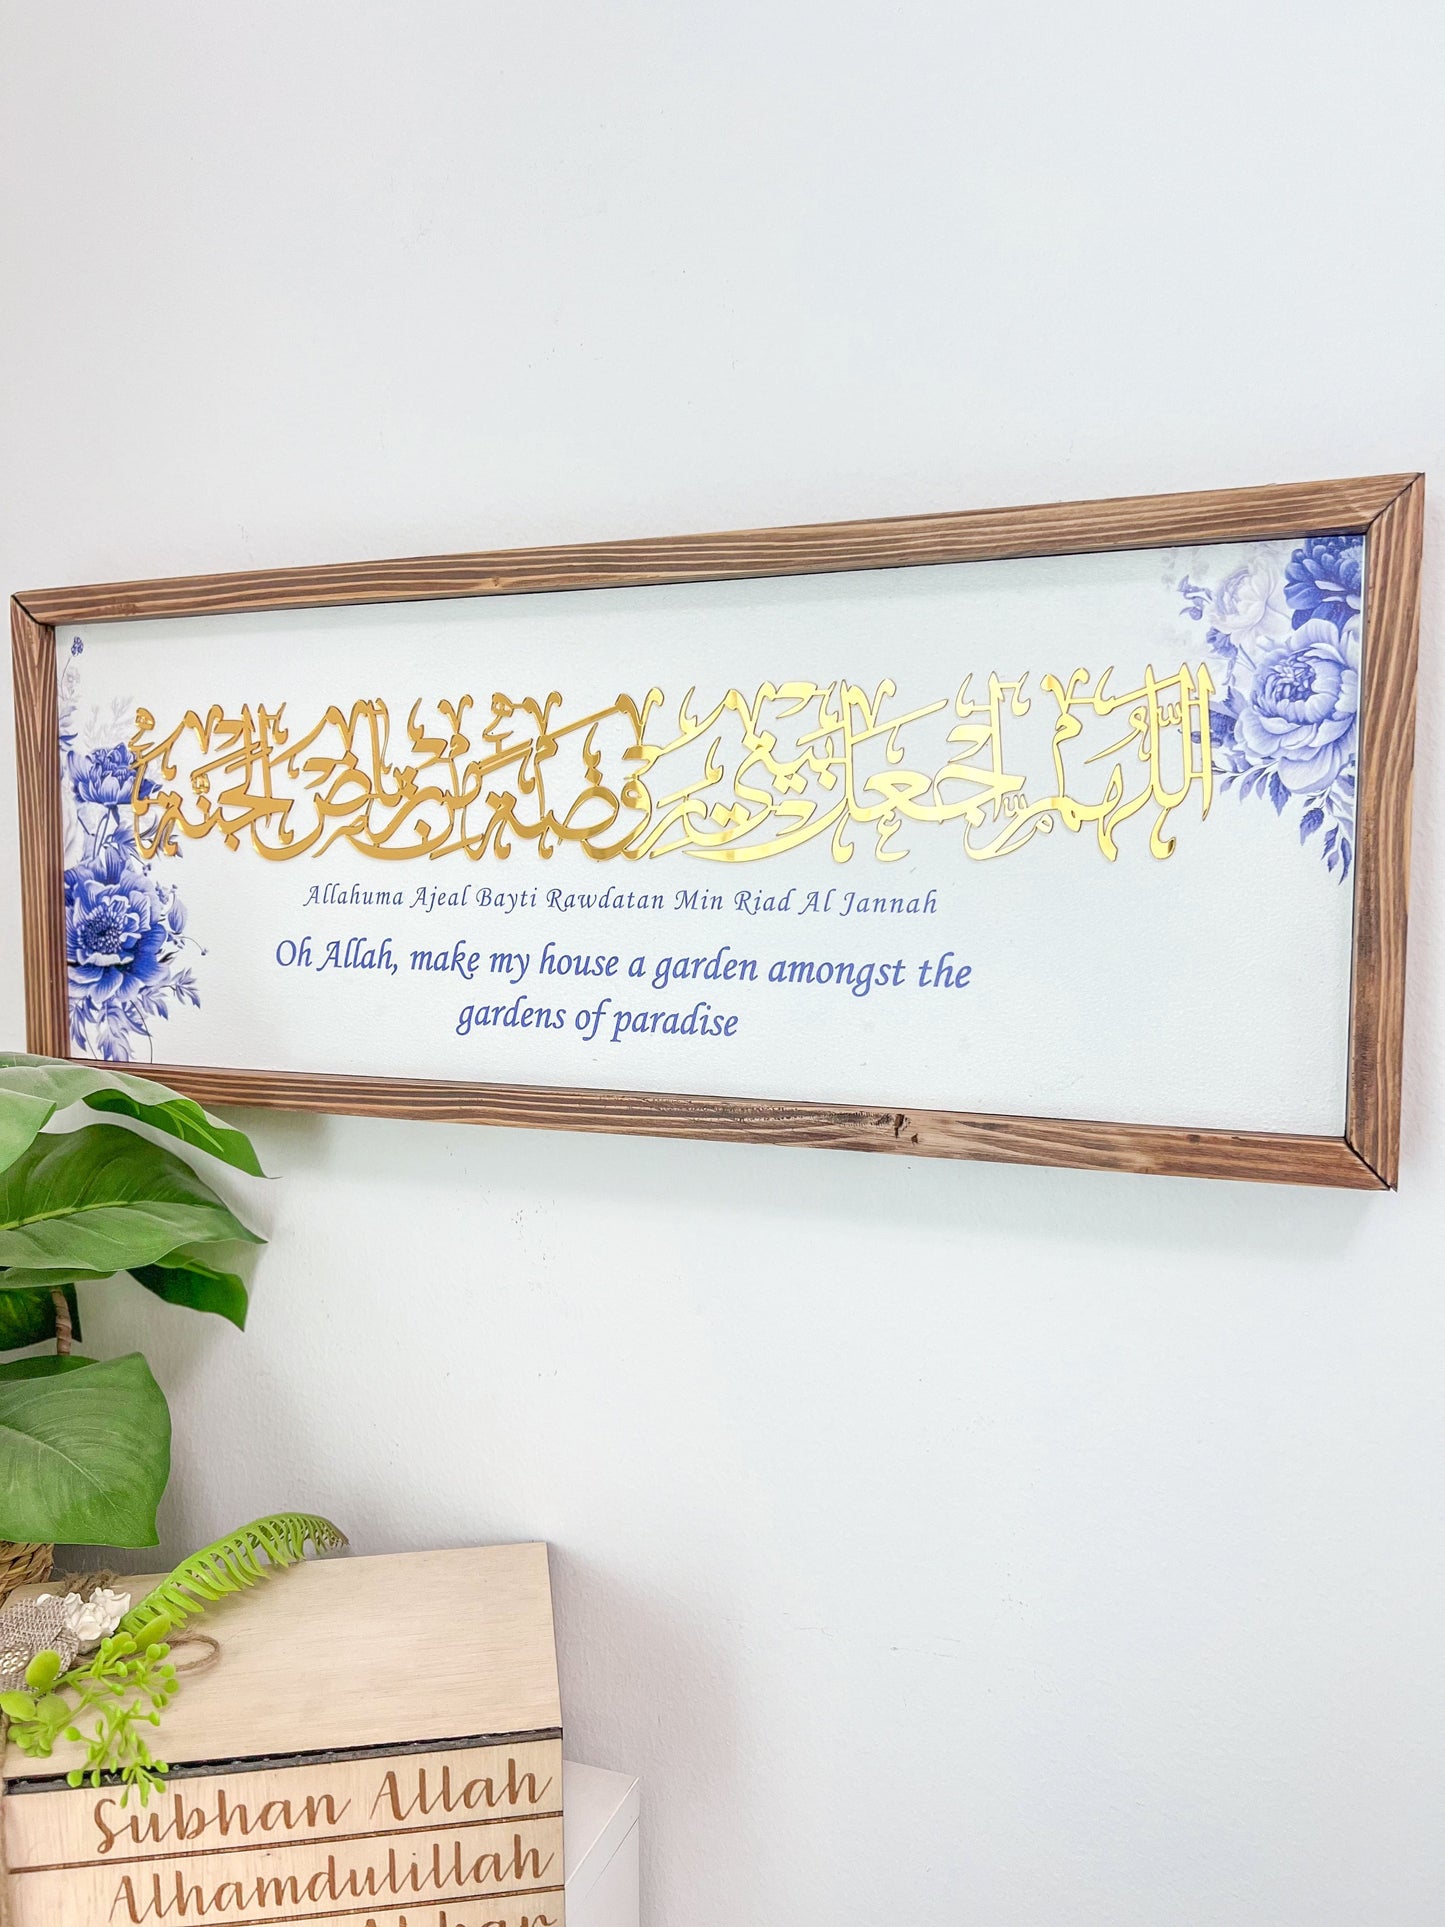 اللَّهُمَّ اجْعَلْ بَيْتِي رَوْضَةً مِنْ رِيَاضِ الْجَنَّةِ
Allahuma Ajeal Bayti Rawdatan Min Riad Al Jannah
Oh Allah, make my house a garden amongst the
gardens of paradise
Subhan Allah
Alhamdulillah